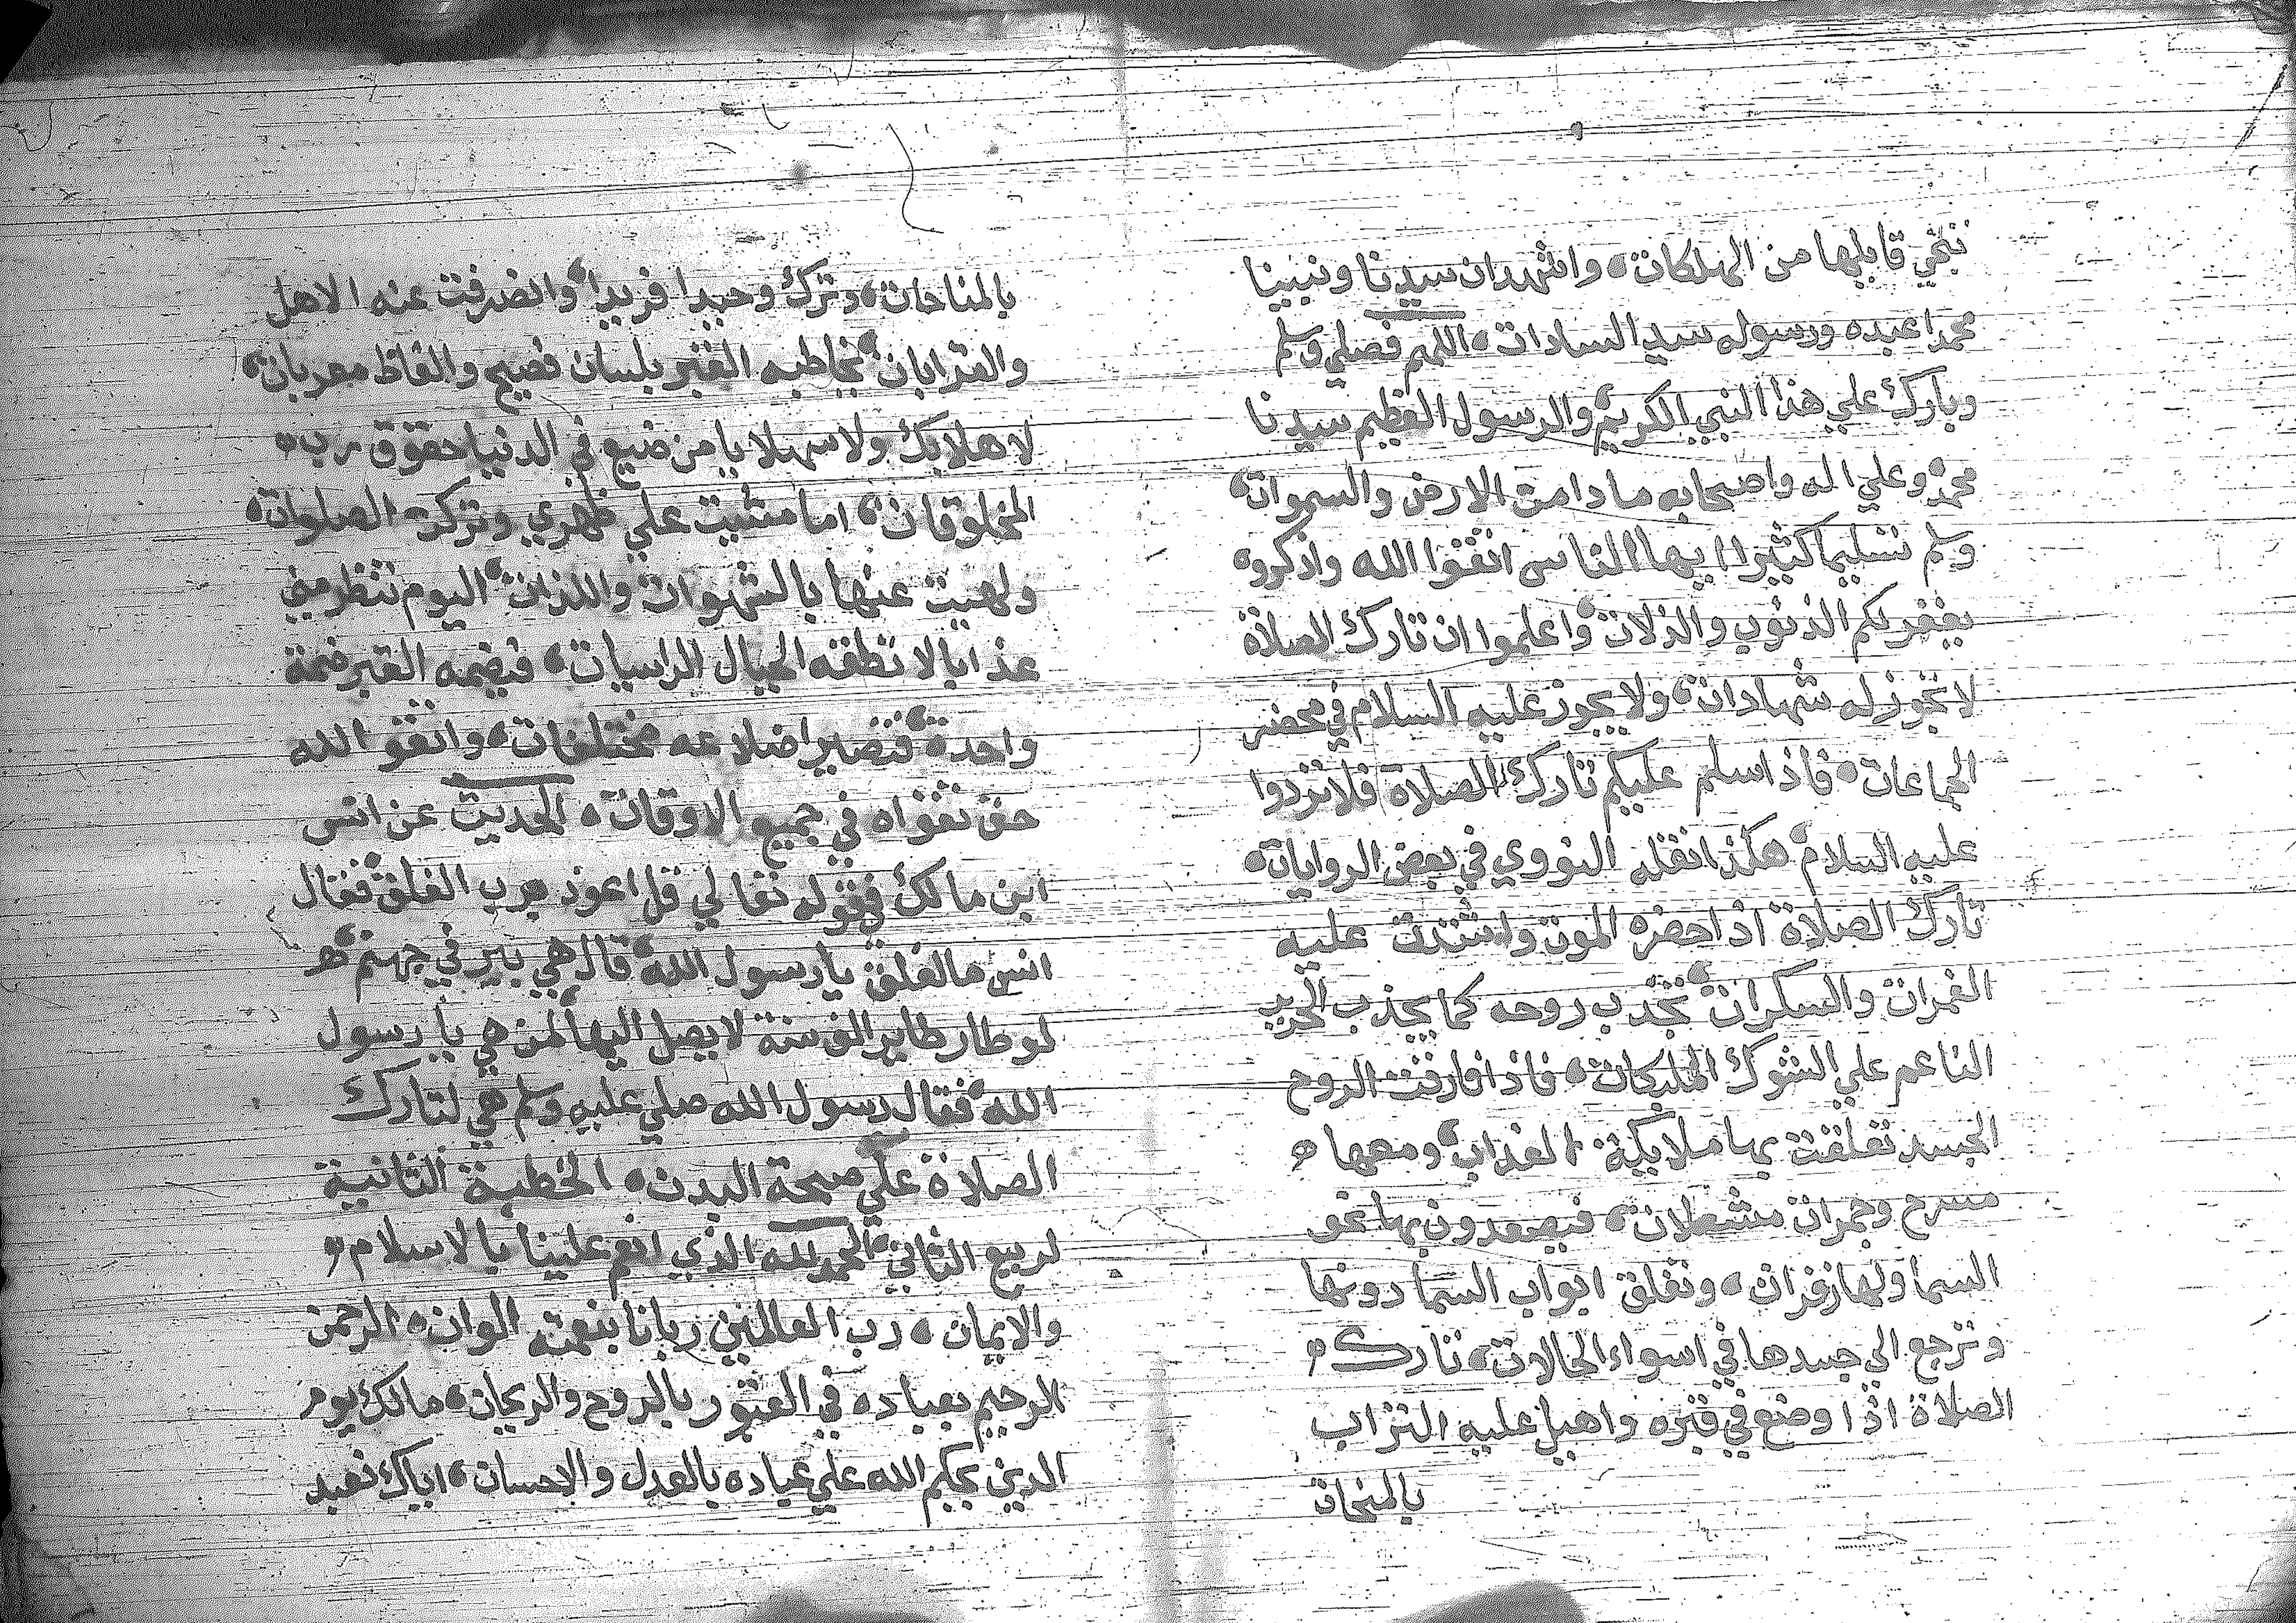 تنجي قايلها من الهلكات، واشهد ان سيدنا ونبينا
محمدا عبده ورسوله سيد السادات، اللهم فصلي وسلم
وبارك علي هذا النبي الكريم، والرسول العظيم سيدنا
محمد، وعلي اله واصحابه ما دامت الارض والسموات،
وسلم تسليما كثيرا ايها الناس اتقوا الله واذكروه
يغفر لكم الذنوب والزلات، واعلموا ان تارك الصلاة
لا تجوز له شهادات، ولا يجوز عليه السلام في محضر
الجماعات، فاذا سلم عليكم تارك الصلاة فلا تردوا
عليه السلام، هكذا نقله النووي في بعض الروايات،
تارك الصلاة اذا حضره الموت واشتدت عليه
الغمرات والسكرات، تجذب روحه كما يجذب الحرير
الناعم علي الشوك المليكات، فاذا فارقت الروح
الجسد تعلقت بها ملايكة العذاب، ومعها
مسرح وجمرات مشعلات، فيصعدون بها نحو
السما ولها زفرات، وتغلق ابواب السما دونها
وترجع الي جسدها في اسواء الحالات، تارك
الصلاة اذا وضع في قبره واهيل عليه التراب
بالمنحات
بالمناحات، وترك وحيدا فريدا، وانصرفت عنه الاهل
والقرابات، يخاطبه القبر بلسان فصيح والفاظ معربات،
لا هلا بك ولا سهلا يا من ضيع في الدنيا حقوق رب
المخلوقات، اما مشيت علي ظهري وتركت الصلوات،
ولهيت عنها بالشهوات واللذات، اليوم تنظر مني
عذابا لا تطقه الجبال الراسيات، فيضمه القبر ضمة
واحدة، فتصير اضلاعه مختلفات، واتقو الله
حق تقواه في جميع الاوقات، الحديث عن انس
ابن مالك فقوله تعالي قل اعوذ برب الفلق، فقال
انس ما الفلق يا رسول الله، قال هي بير في جهنم،
لو طار طاير الف سنة لا يصل اليها، لمن هي يا رسول
الله، فقال رسول الله صلي عليه وسلم هي لتارك
الصلاة علي صحة البدن، الخطبة الثانية
لربيع الثاني، الحمد لله الذي انعم علينا بالاسلام،
والايمان، رب العالمين ربانا بنعمته الوان، الرحمن
الرحيم بعباده في القبور بالروح والريحان، مالك يوم
الدين يحكم الله علي عباده بالعدل والاحسان، اياك نعبد